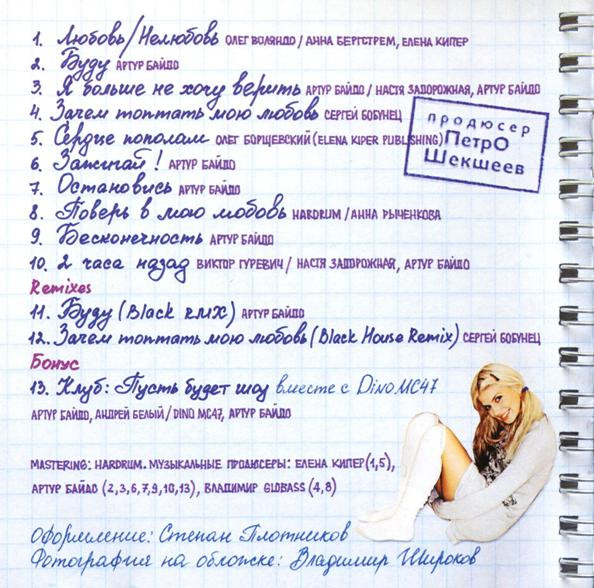 1. Любовь/Нелюбовь ОЛЕГ ВОЛЯНДО / АННА БЕРГСТРЕМ, ЕЛЕНА КИПЕР
2. Буду АРТУР БАЙДО
3. Я больше не хочу верить АРТУР БАЙДО / НАСТЯ ЗАДОРОЖНАЯ, АРТУР БАЙДО
4. Зачем топтать мою любовь СЕРГЕЙ БОБУНЕЦ
5. Сердце пополам ОЛЕГ БОРЩЕВСКИЙ (ELENA KIPER PUBLISHING)
продюсер
ПетрО
Шекшеев
6. Зажигай! АРТУР БАЙДО
7. Остановись АРТУР БАЙДО
8. Поверь в мою любовь HARDRUM / АННА РЫЧЕНКОВА
9. Бесконечность АРТУР БАЙДО
10. 2 часа назад ВИКТОР ГУРЕВИЧ / НАСТЯ ЗАДОРОЖНАЯ, АРТУР БАЙДО
Remixes
11. Буду (Black RMX) АРТУР БАЙДО
12. Зачем топтать мою любовь (Black House Remix) СЕРГЕЙ БОБУНЕЦ
Бонус
13. Клуб: Пусть будет шоу вместе с Dino MC47
АРТУР БАЙДО, АНДРЕЙ БЕЛЫЙ / DINO MC47, АРТУР БАЙДО
MASTERING: HARDRUM. МУЗЫКАЛЬНЫЕ ПРОДЮСЕРЫ: ЕЛЕНА КИПЕР (1,5),
АРТУР БАЙДО (2,3,6,7,9,10,13), ВЛАДИМИР GLOBASS (4,8)
Оформление: Степан Плотников
Фотография на обложке: Владимир Широков